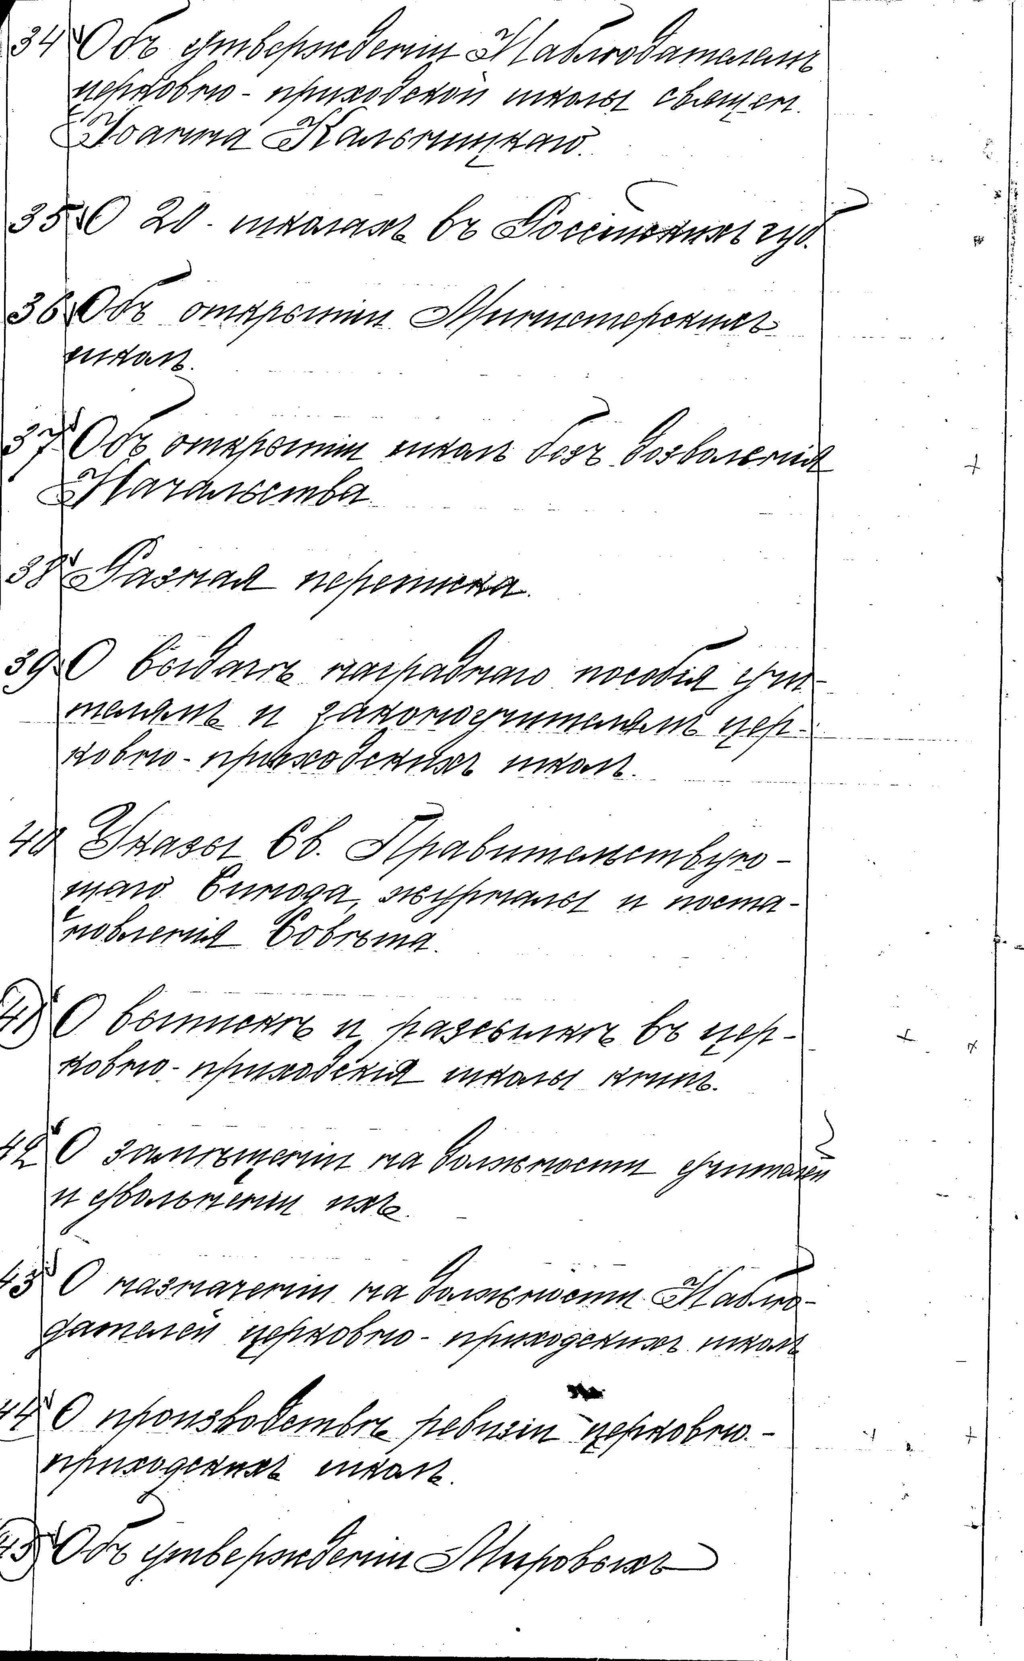 34 Объ утвержденіи Наблюдателемъ
церковно-приходской школы священ.
Іоанна Кальницкаго.
35 О 20. школахъ въ Россійскихъ губ.
36 Объ открытіи Министерскихъ
школъ.
37 Объ открытіи школъ безъ дозволенія
Начальства.
38 Разная переписка.
39 О выдачѣ награднаго пособія учи-
телямъ и законоучителямъ цер-
ковно-приходскихъ школъ.
40 Указы Св. Правительствую-
щаго Синода, журналы и поста-
новленія Совѣта.
41 О выпискѣ и разсылкѣ въ цер-
ковно-приходскія школы книгъ.
42 О замѣщеніи на должности учителей
и увольненіи ихъ.
43 О назначеніи на должности Наблю-
дателей церковно-приходскихъ школъ
44 О производствѣ ревизіи церковно-
приходскихъ школъ.
45 Объ утвержденіи Мировыхъ